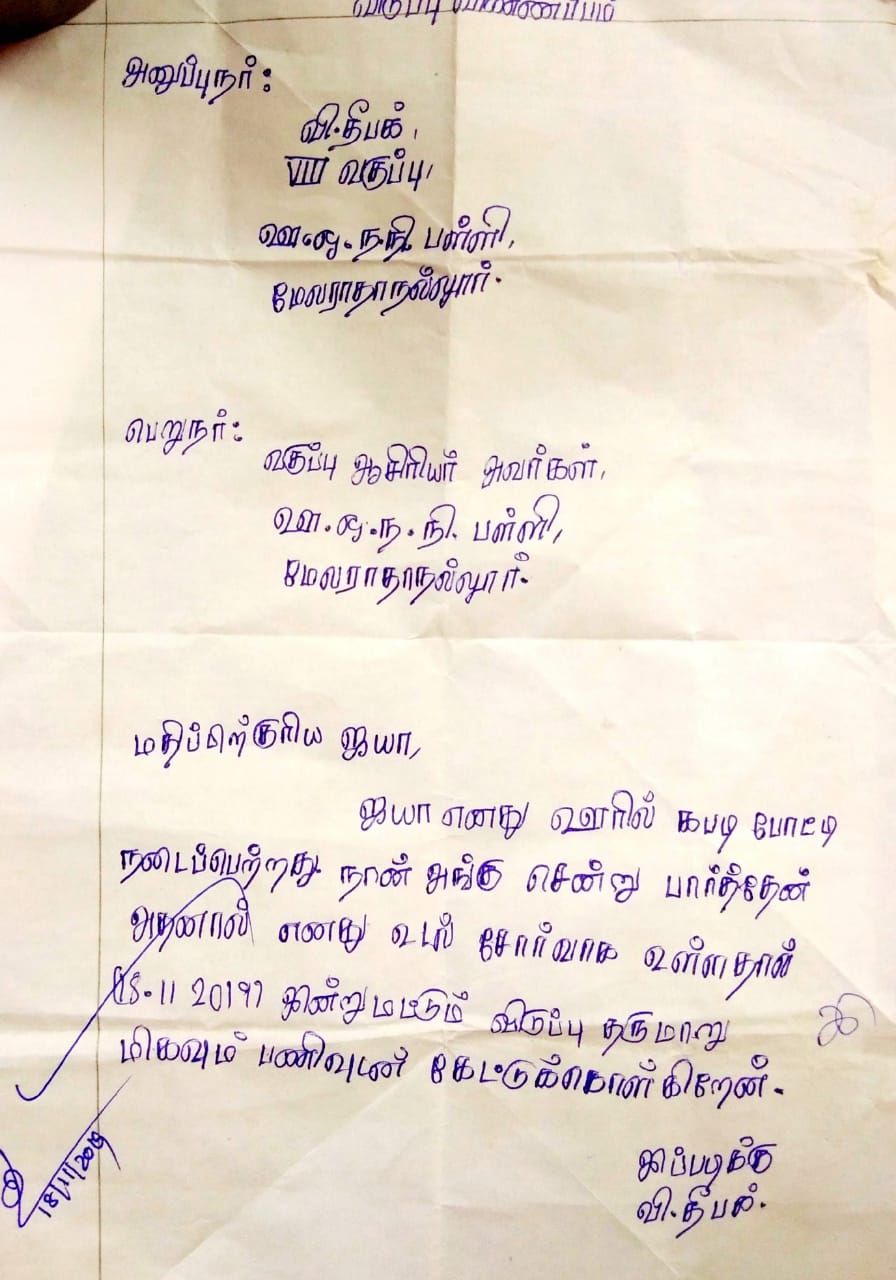 விடுப்பு விண்ணப்பம்
அனுப்புநர்:
வி.தீபக்,
VIII வகுப்பு,
ஊ.ஒ.ந.நி. பள்ளி,
மேலராதாநல்லூர்.
பெறுநர்:
வகுப்பு ஆசிரியர் அவர்கள்,
ஊ.ஒ.ந.நி. பள்ளி,
மேலராதாநல்லூர்.
ஐயா,
ஐயா எனது ஊரில் கபடி போட்டி
நடைப்பெற்றது. நான் அங்கு சென்று பார்த்தேன்
அதனால் எனது உடல் சோர்வாக உள்ளதால்
இன்று மட்டும் விடுப்பு தருமாறு
மிகவும் பணிவுடன் கேட்டுக்கொள்கிறேன்.
இப்படிக்கு
வி.தீபக்.
18/11/2019